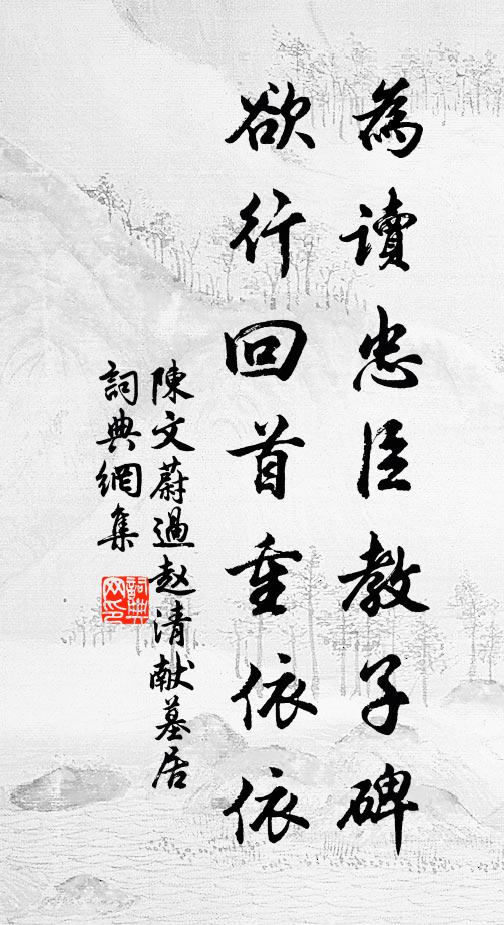 為讀忠臣教子碑
欲行回首重依依
陳文蔚過赵清献墓居
詞典網集